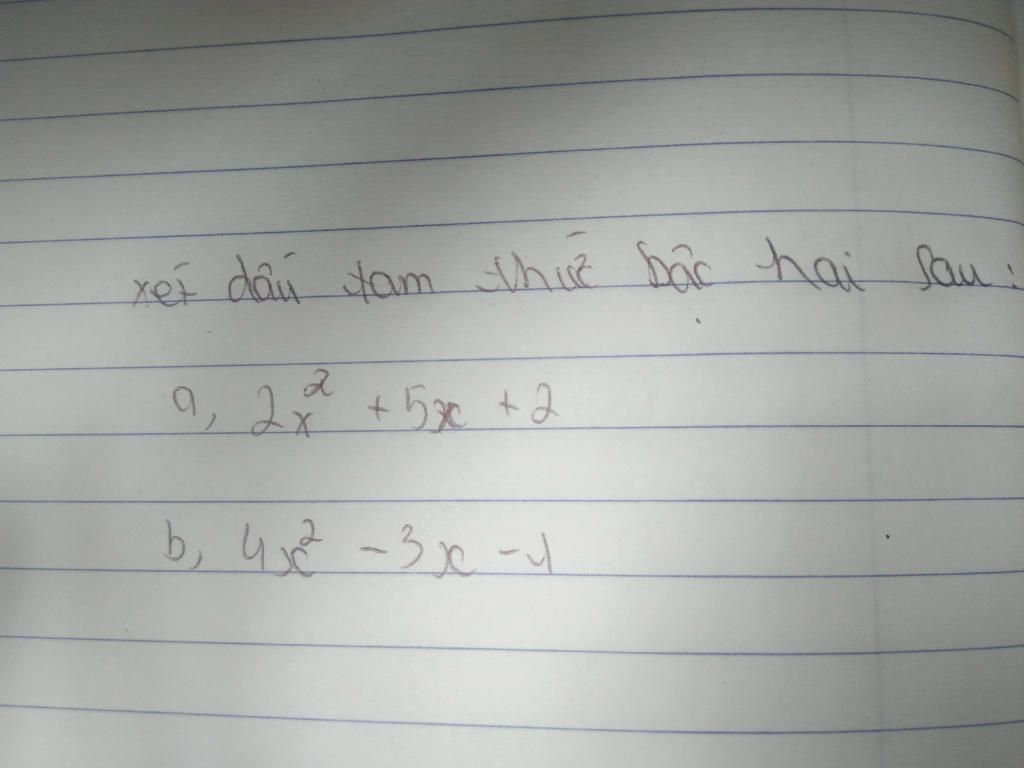 xét dấu tam thức bậc hai sau:
a, 2x² + 5x + 2
b, 4x² - 3x - 1